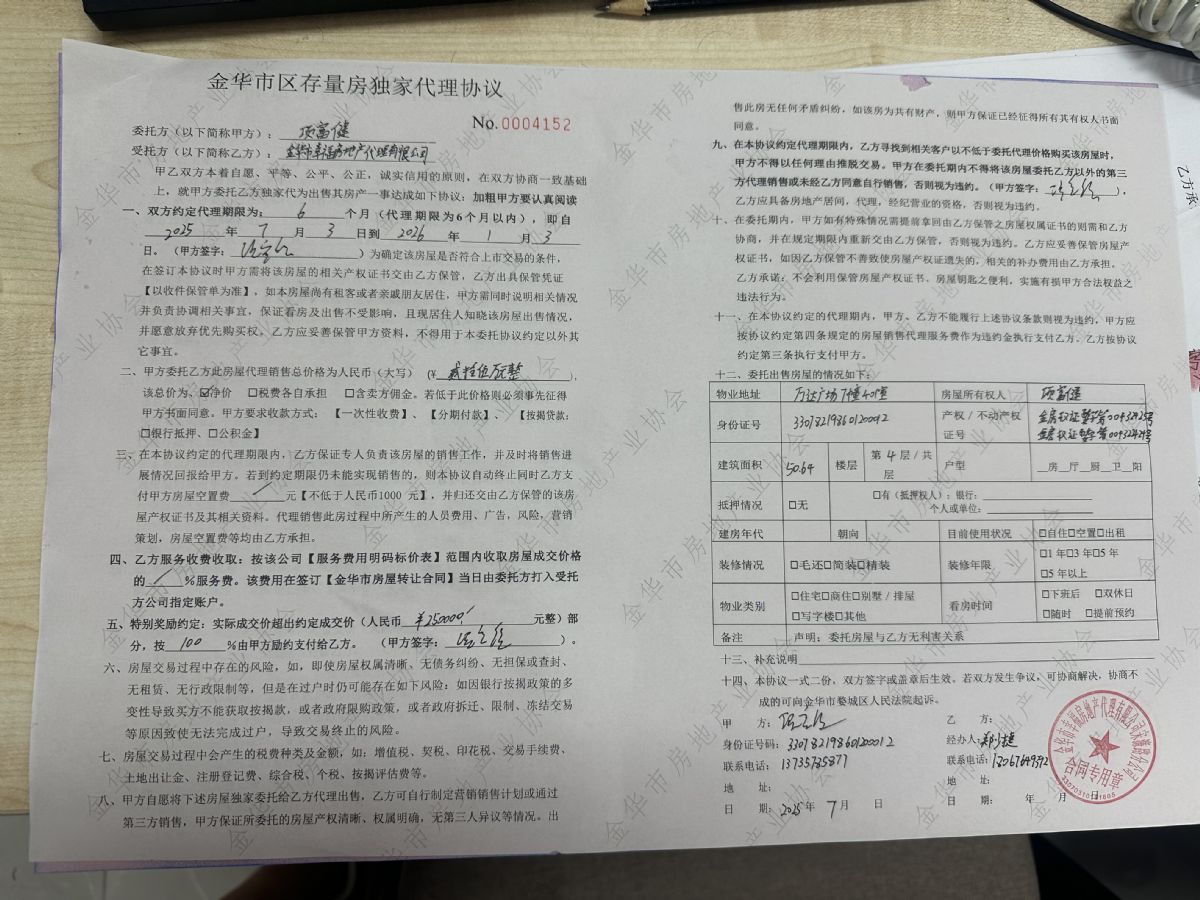 金华市区存量房独家代理协议
No.0004152
委托方（以下简称甲方）： 项富健
受托方（以下简称乙方）： 金华市幸福房地产代理有限公司
甲乙双方本着自愿、平等、公平、公正，诚实信用的原则，在双方协商一致基础
上，就甲方委托乙方独家代为出售其房产一事达成如下协议：加粗甲方要认真阅读
一、双方约定代理期限为： 6 个月（代理期限为6个月以内），即自
2025 年 7 月 3 日到 2026 年 1 月 3
日。（甲方签字： ）为确定该房屋是否符合上市交易的条件，
在签订本协议时甲方需将该房屋的相关产权证书交由乙方保管，乙方出具保管凭证
【以收件保管单为准】，如本房屋尚有租客或者亲戚朋友居住，甲方需同时说明相关情况
并负责协调相关事宜，保证看房及出售不受影响，且现居住人知晓该房屋出售情况，
并愿意放弃优先购买权。乙方应妥善保管甲方资料，不得用于本委托协议约定以外其
它事宜。
二、甲方委托乙方此房屋代理销售总价格为人民币（大写）（¥ 贰拾伍万元整 ），
该总价为，☑净价 □税费各自承担 □含卖方佣金。若低于此价格则必须事先征得
甲方书面同意。甲方要求收款方式：【一次性收费】、【分期付款】、【按揭贷款：
□银行抵押、□公积金】
三、在本协议约定的代理期限内，乙方保证专人负责该房屋的销售工作，并及时将销售进
展情况回报给甲方。若到约定期限仍未能实现销售的，则本协议自动终止同时乙方支
付甲方房屋空置费 / 元【不低于人民币1000 元】，并归还交由乙方保管的该房
屋产权证书及其相关资料。代理销售此房过程中所产生的人员费用、广告，风险，营销
策划，房屋空置费等均由乙方承担。
四、乙方服务收费收取：按该公司【服务费用明码标价表】范围内收取房屋成交价格
的 / %服务费。该费用在签订【金华市房屋转让合同】当日由委托方打入受托
方公司指定账户。
五、特别奖励约定：实际成交价超出约定成交价（人民币 ¥250000 元整）部
分，按 100 %由甲方励约支付给乙方。（甲方签字： ）。
六、房屋交易过程中存在的风险，如，即使房屋权属清晰、无债务纠纷、无担保或查封、
无租赁、无行政限制等，但是在过户时仍可能存在如下风险：如因银行按揭政策的多
变性导致买方不能获取按揭款，或者政府限购政策，或者政府拆迁、限制、冻结交易
等原因致使无法完成过户，导致交易终止的风险。
七、房屋交易过程中会产生的税费种类及金额，如：增值税、契税、印花税、交易手续费、
土地出让金、注册登记费、综合税、个税、按揭评估费等。
八、甲方自愿将下述房屋独家委托给乙方代理出售，乙方可自行制定营销销售计划或通过
第三方销售，甲方保证所委托的房屋产权清晰、权属明确，无第三人异议等情况。出
售此房无任何矛盾纠纷，如该房为共有财产，则甲方保证已经征得所有其有权人书面
同意。
九、在本协议约定代理期限内，乙方寻找到相关客户以不低于委托代理价格购买该房屋时，
甲方不得以任何理由推脱交易。甲方在委托期内不得将该房屋委托乙方以外的第三
方代理销售或未经乙方同意自行销售，否则视为违约。（甲方签字： ），
乙方应具备房地产居间，代理，经纪营业的资格，否则视为违约。
十、在委托期内，甲方如有特殊情况需提前拿回由乙方保管之房屋权属证书的则需和乙方
协商，并在规定期限内重新交由乙方保管，否则视为违约。乙方应妥善保管房屋产
权证书，如因乙方保管不善致使房屋产权证遗失的，相关的补办费用由乙方承担。
乙方承诺：不会利用保管房屋产权证书、房屋钥匙之便利，实施有损甲方合法权益之
违法行为。
十一、在本协议约定的代理期内，甲方、乙方不能履行上述协议条款则视为违约，甲方应
按协议约定第四条规定的房屋销售代理服务费作为违约金执行支付乙方。乙方按协议
约定第三条执行支付甲方。
十二、委托出售房屋的情况如下：
物业地址 万达广场7幢401室 房屋所有权人 项富健
身份证号 330782198601200012 产权/不动产权证号 金房权证婺字第00432425号
金房权证婺字第00432424号
建筑面积 50.64 楼层 第 4 层/共 层 户型 _房_厅_厨_卫_阳
抵押情况 □无 □有（抵押权人）：银行：
个人或单位：
建房年代 朝向 目前使用状况 □自住□空置□出租
装修情况 □毛还□简装□精装 装修年限 □1年□3年□5年
□5年以上
物业类别 □住宅□商住□别墅/排屋
□写字楼□其他 看房时间 □下班后 □双休日
□随时 □提前预约
备注 声明：委托房屋与乙方无利害关系
十三、补充说明
十四、本协议一式二份，双方签字或盖章后生效。若双方发生争议，可协商解决，协商不
成的可向金华市婺城区人民法院起诉。
甲 方：
身份证号码：330782198601200012
联系电话：13735735877
地 址：
日 期：2025年 7月 日
乙 方：
经办人：
联系电话：18067649372
地 址：
日 期： 年 月 日
合同专用章
乙方承